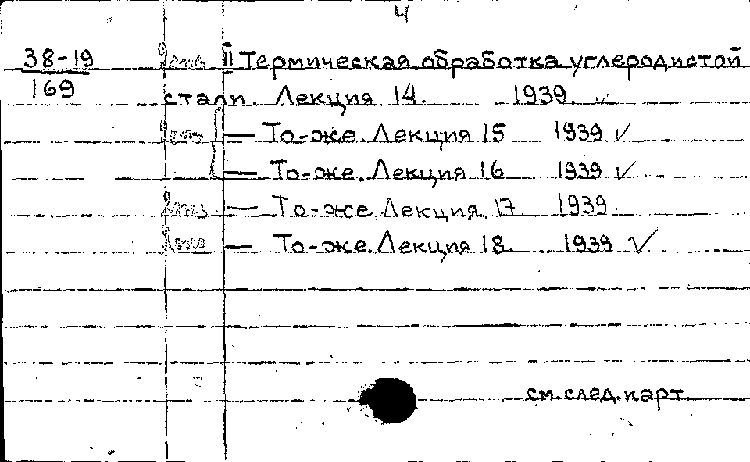 4
38-19 II Термическая обработка углеродистой
169 стали. Лекция 14. 1939 ✓
— То-же. Лекция 15 1939 ✓
— То-же. Лекция 16 1939 ✓
— То-же. Лекция 17 1939
— То-же. Лекция 18. 1939 ✓
см. след. карт.